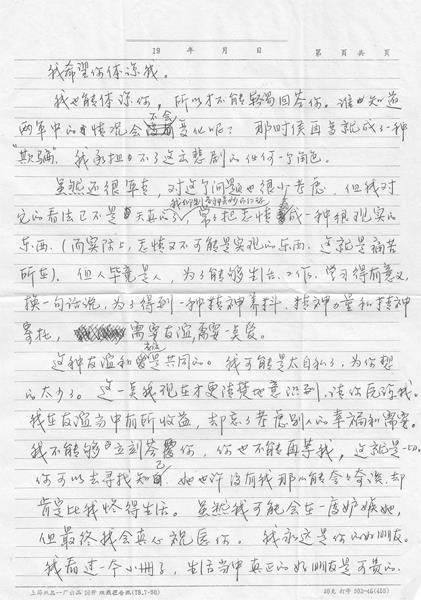 19 年 月 日 第 页 共 页
我希望你体谅我。
我也能体谅你，所以才不能轻易回答你。谁知道
不会
两年中的情况会有变化呢？那时侯再否就成了一种
“欺骗”。我承担不了这出悲剧的任何一个角色。
虽然还很年青，对这个问题也很少考虑，但我对
它的看法已不是天真的了，常把爱情成一种很现实的
东西。（而实际上，爱情又不可能是实现的东西，这就是痛苦
所在）。但人毕竟是人，为了能够生活、工作、学习得有意义，
换一句话说，为了得到一种精神养料、精神力量和精神
寄托，需要友谊，需要爱。
这种友谊和是共同的。我可能是太自私了，为你想
的太少了。这一点我现在才更清楚地意识到，请你原谅我。
我在友谊当中有所收益，却忘了考虑别人的幸福和需要。
我不能够立刻答覆你，你也不能再等我，这就是一切。
你可以去寻找知己，她也许没有我那么能会，却
肯定比我懂得生活。虽然我可能会在一度嫉妒她，
但最终我会真心祝愿你。我永远是你的好朋友。
我看过一个小册子，生活当中真正的好朋友是可贵的。
上海纸品一厂出品 16开 双线报告纸 (78.7-50)
20克 打字 502-46(455)